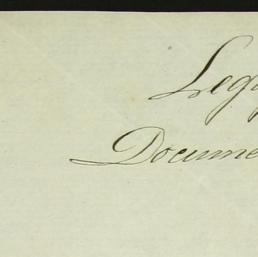 Lega
Docume